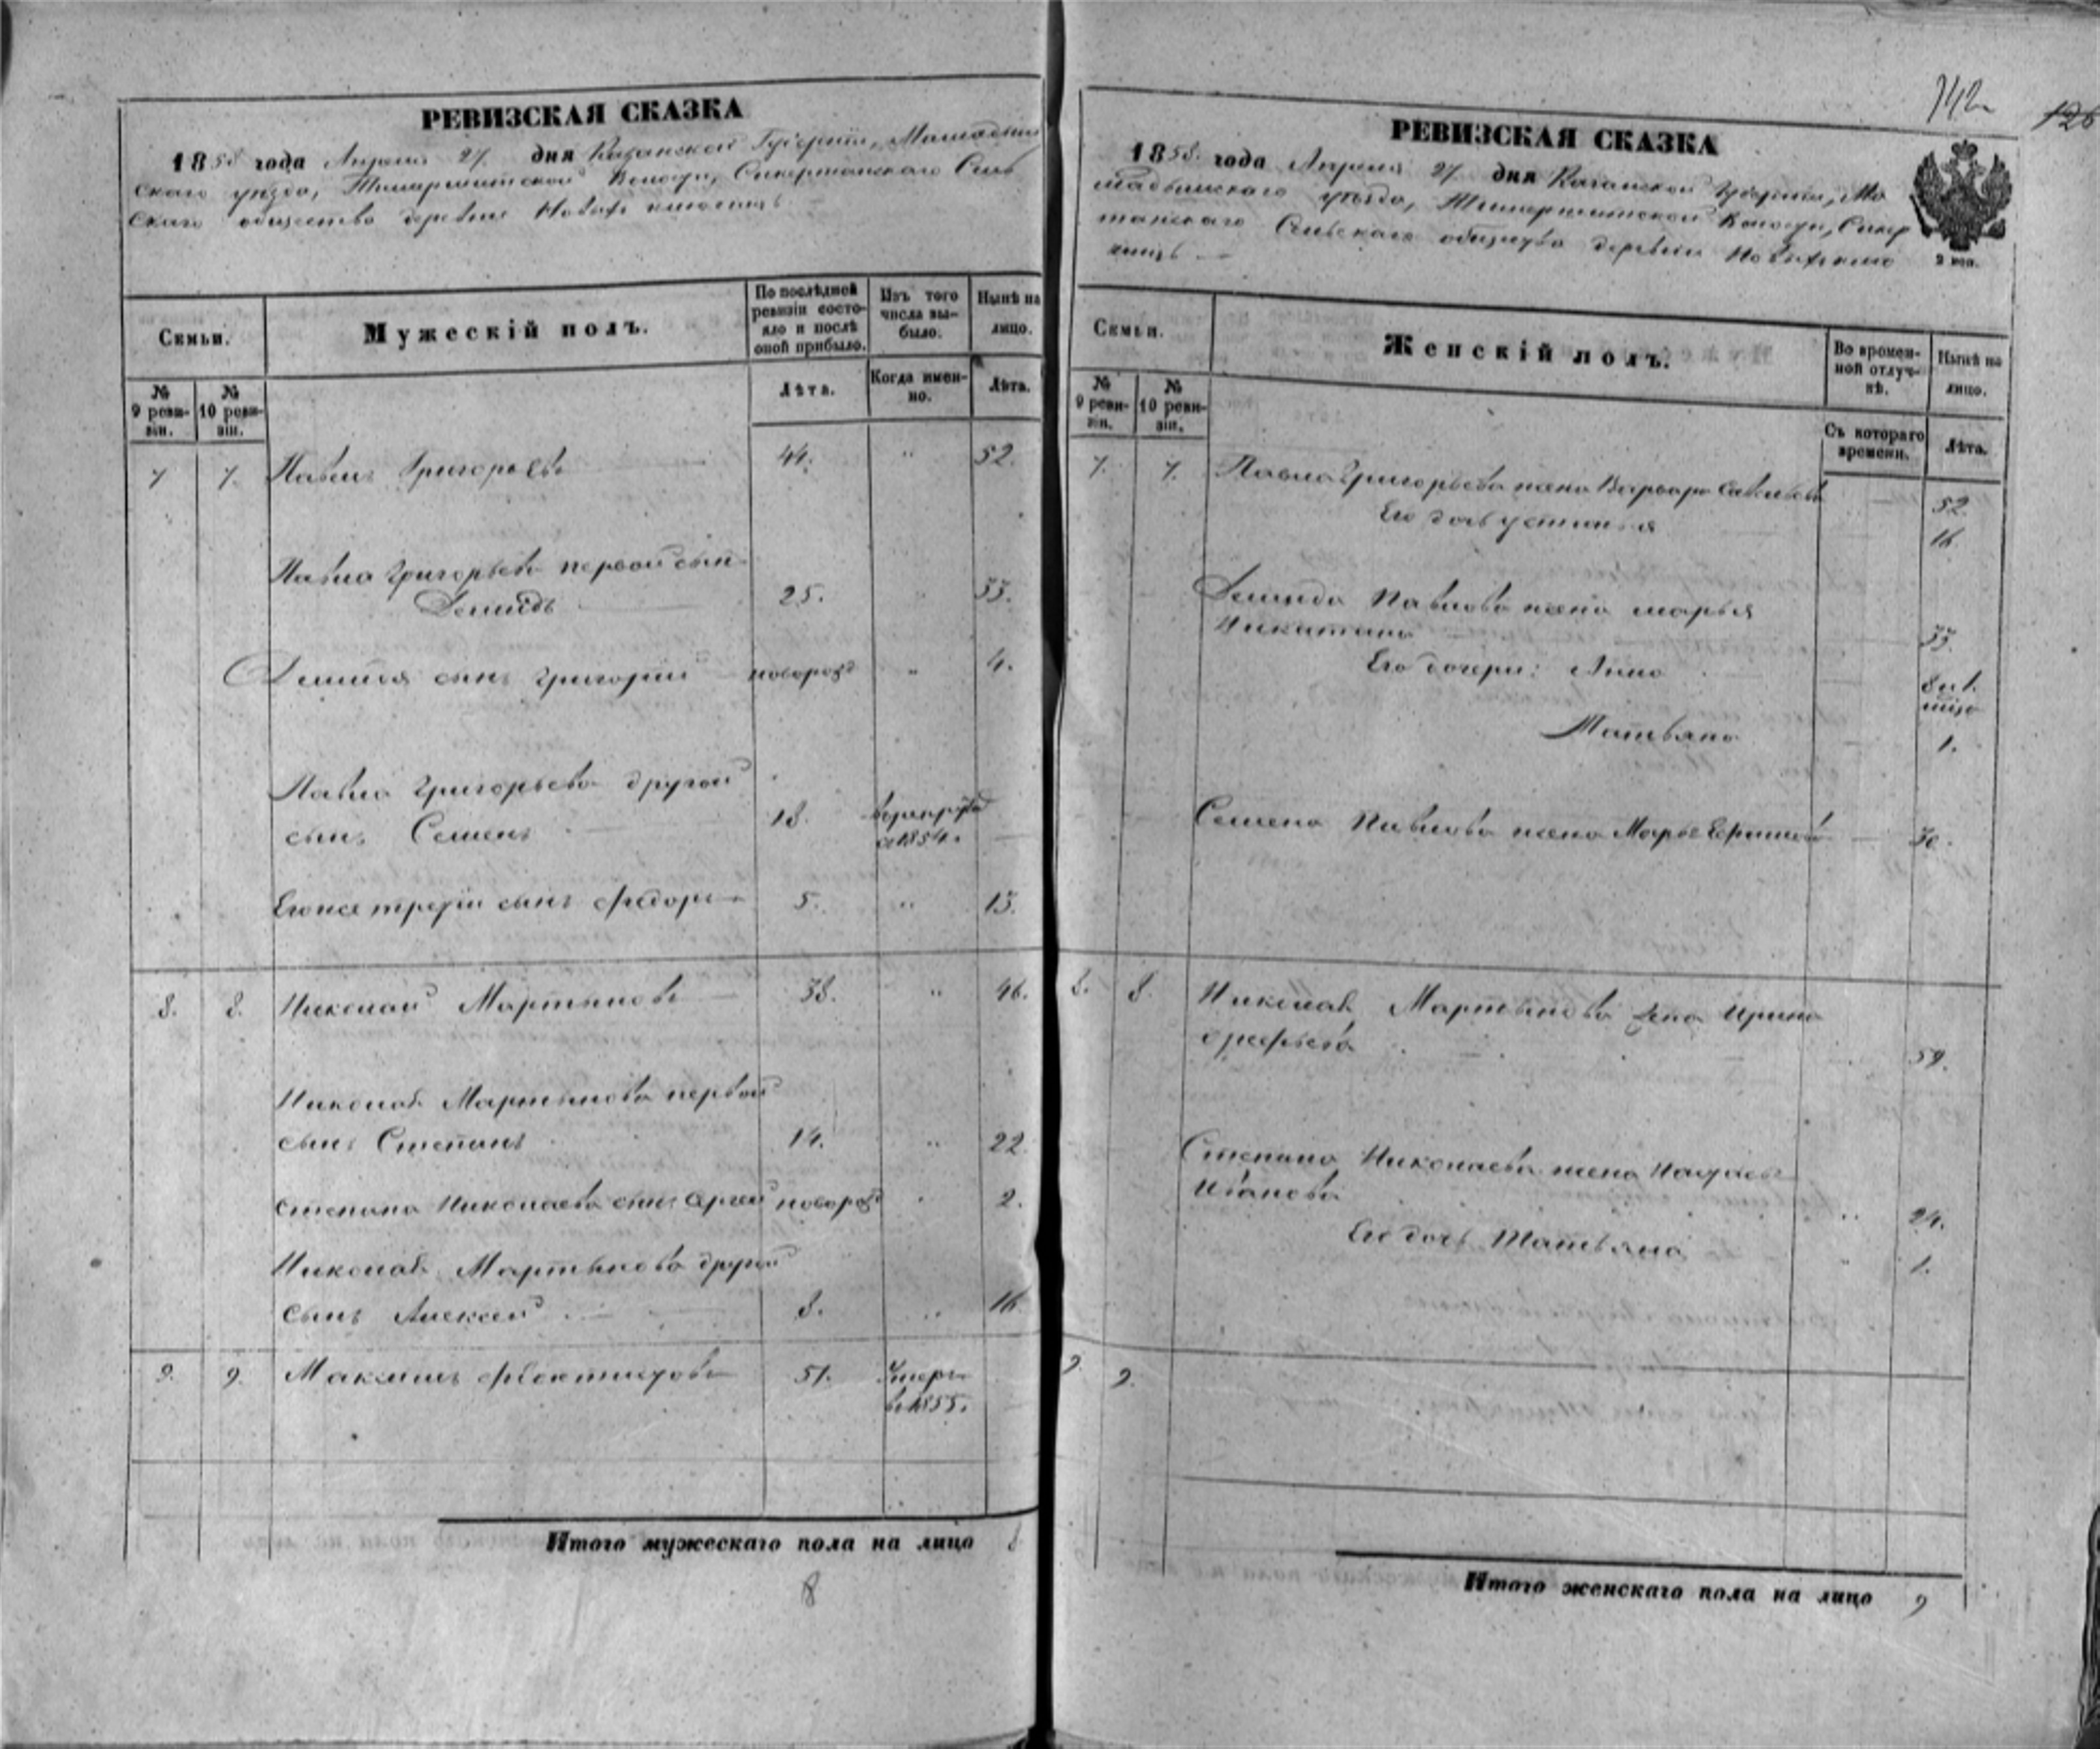 РЕВИЗСКАЯ СКАЗКА
1858 года Апреля 27 дня Казанской Губерніи, Мамадыш
скаго уезда, волости, Сель
скаго общества деревни Новыхъ
Семьи.
Мужескій полъ.
По послѣдней ревизіи состояло и послѣ оной прибыло.
Изъ того числа выбыло.
Нынѣ на лицо.
№ 9 ревизіи.
№ 10 ревизіи.
Лѣта.
Когда именно.
Лѣта.
7 7. Павелъ Григорьевъ 44. " 52.
Павла Григорьева первой сынъ
Демидъ 25. " 33.
Демида сынъ Григорий новорожд " 4.
Павла Григорьева другой
сынъ Семенъ 18. в рекруты
въ 1854.
Его же третий сынъ Федоръ 5. " 13.
8. 8. Николай Мартыновъ 38. " 46.
Николая Мартынова первой
сынъ Степанъ 14. " 22
Степана Николаева сынъ Сергей новорожд " 2.
Николая Мартынова другой
сынъ Алексей 8. " 16.
9. 9. Максимъ Феоктистовъ 51. Умеръ
въ 1855.
Итого мужескаго пола на лицо 8
8
142
126
РЕВИЗСКАЯ СКАЗКА
1858 года Апреля 27 дня Казанской Губерніи, Ма
мадышскаго уезда, волости,
Сельскаго общества деревни Новыхъ
2 коп.
Семьи.
Женскій полъ.
Во временной отлучкѣ.
Нынѣ на лицо.
№ 9 ревизіи.
№ 10 ревизіи.
Съ котораго времени.
Лѣта.
7. 7. Павла Григорьева жена Варвара Савельева 52.
Его дочь Устинья 16.
Демида Павлова жена Марья
Никитина 33.
Его дочери: Анна 8 и 1.
Татьяна 1.
Семена Павлова жена Марья 30.
8. 8. Николая Мартынова жена Ирина
59.
Степана Николаева жена
Иванова " 24.
Его дочь Татьяна " 1.
9. 9.
Итого женскаго пола на лицо 9